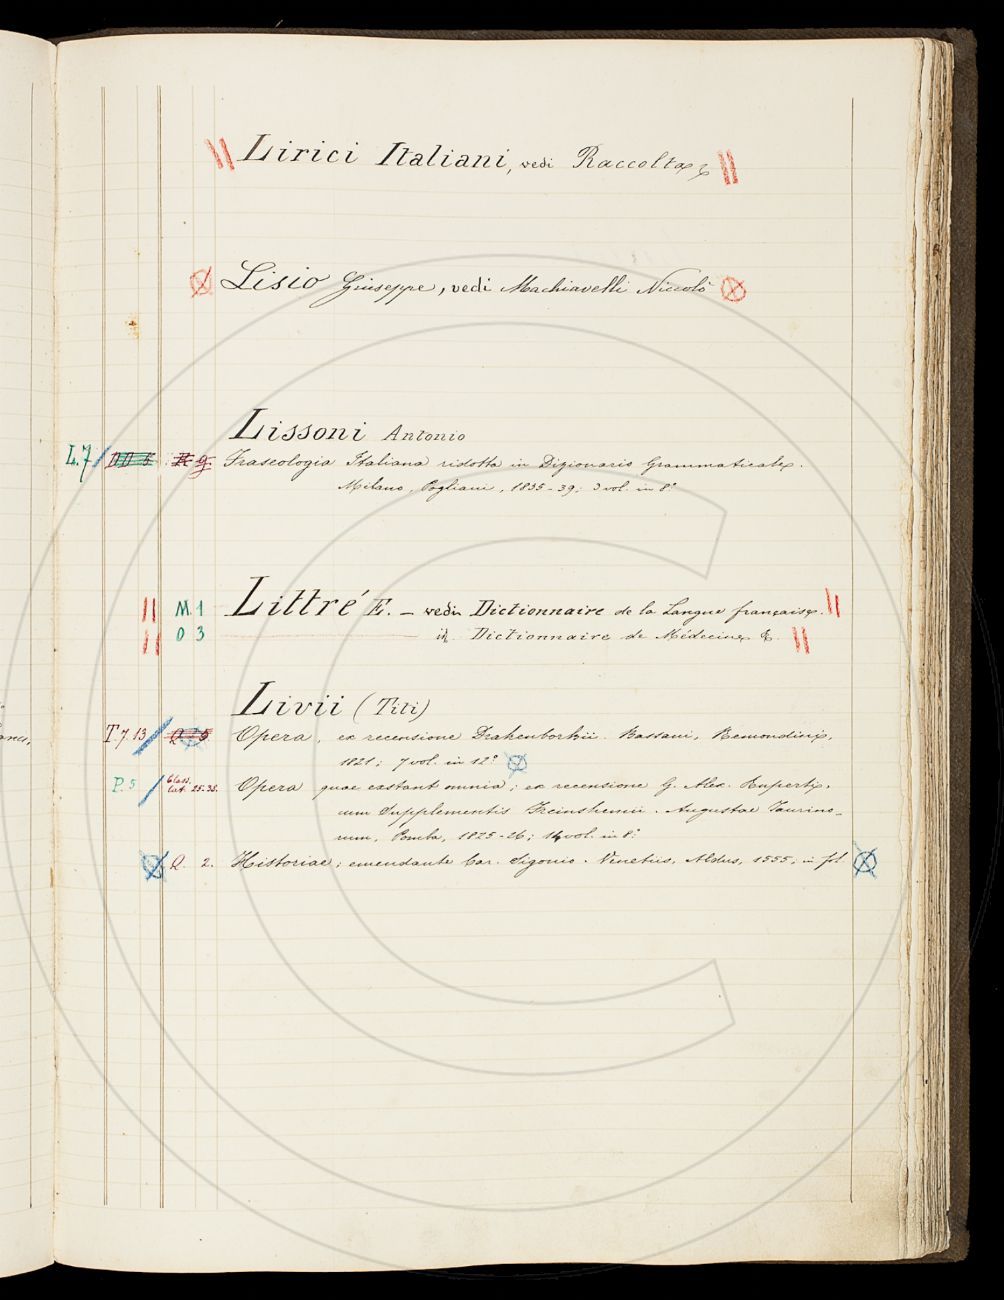 Lirici Italiani, vedi Raccolta
Lisio Giuseppe, vedi Machiavelli Niccolò
Lissoni Antonio
L.7 Fraseologia Italiana ridotta in Dizionario Grammaticale.
Milano, Pogliani, 1835-39; 3 vol. in 8°
M. 1 Littré E. — vedi Dictionnaire de la Langue française.
O 3 id. Dictionnaire de Médecine &.
Livii (Titi)
T.7.13 Opera, ex recensione Drakenborkii. Bassani, Remondini,
1821; 7 vol. in 12°
P. 5 Class. Lat. 25-35. Opera quae exstant omnia; ex recensione G. Alex. Ruperti,
cum Supplementis Freinshemii. Augustae Taurino-
rum, Pomba, 1825-26; 14 vol. in 8°
Q. 2. Historiae; emendante Car. Sigonio. Venetiis, Aldus, 1555, in fol.